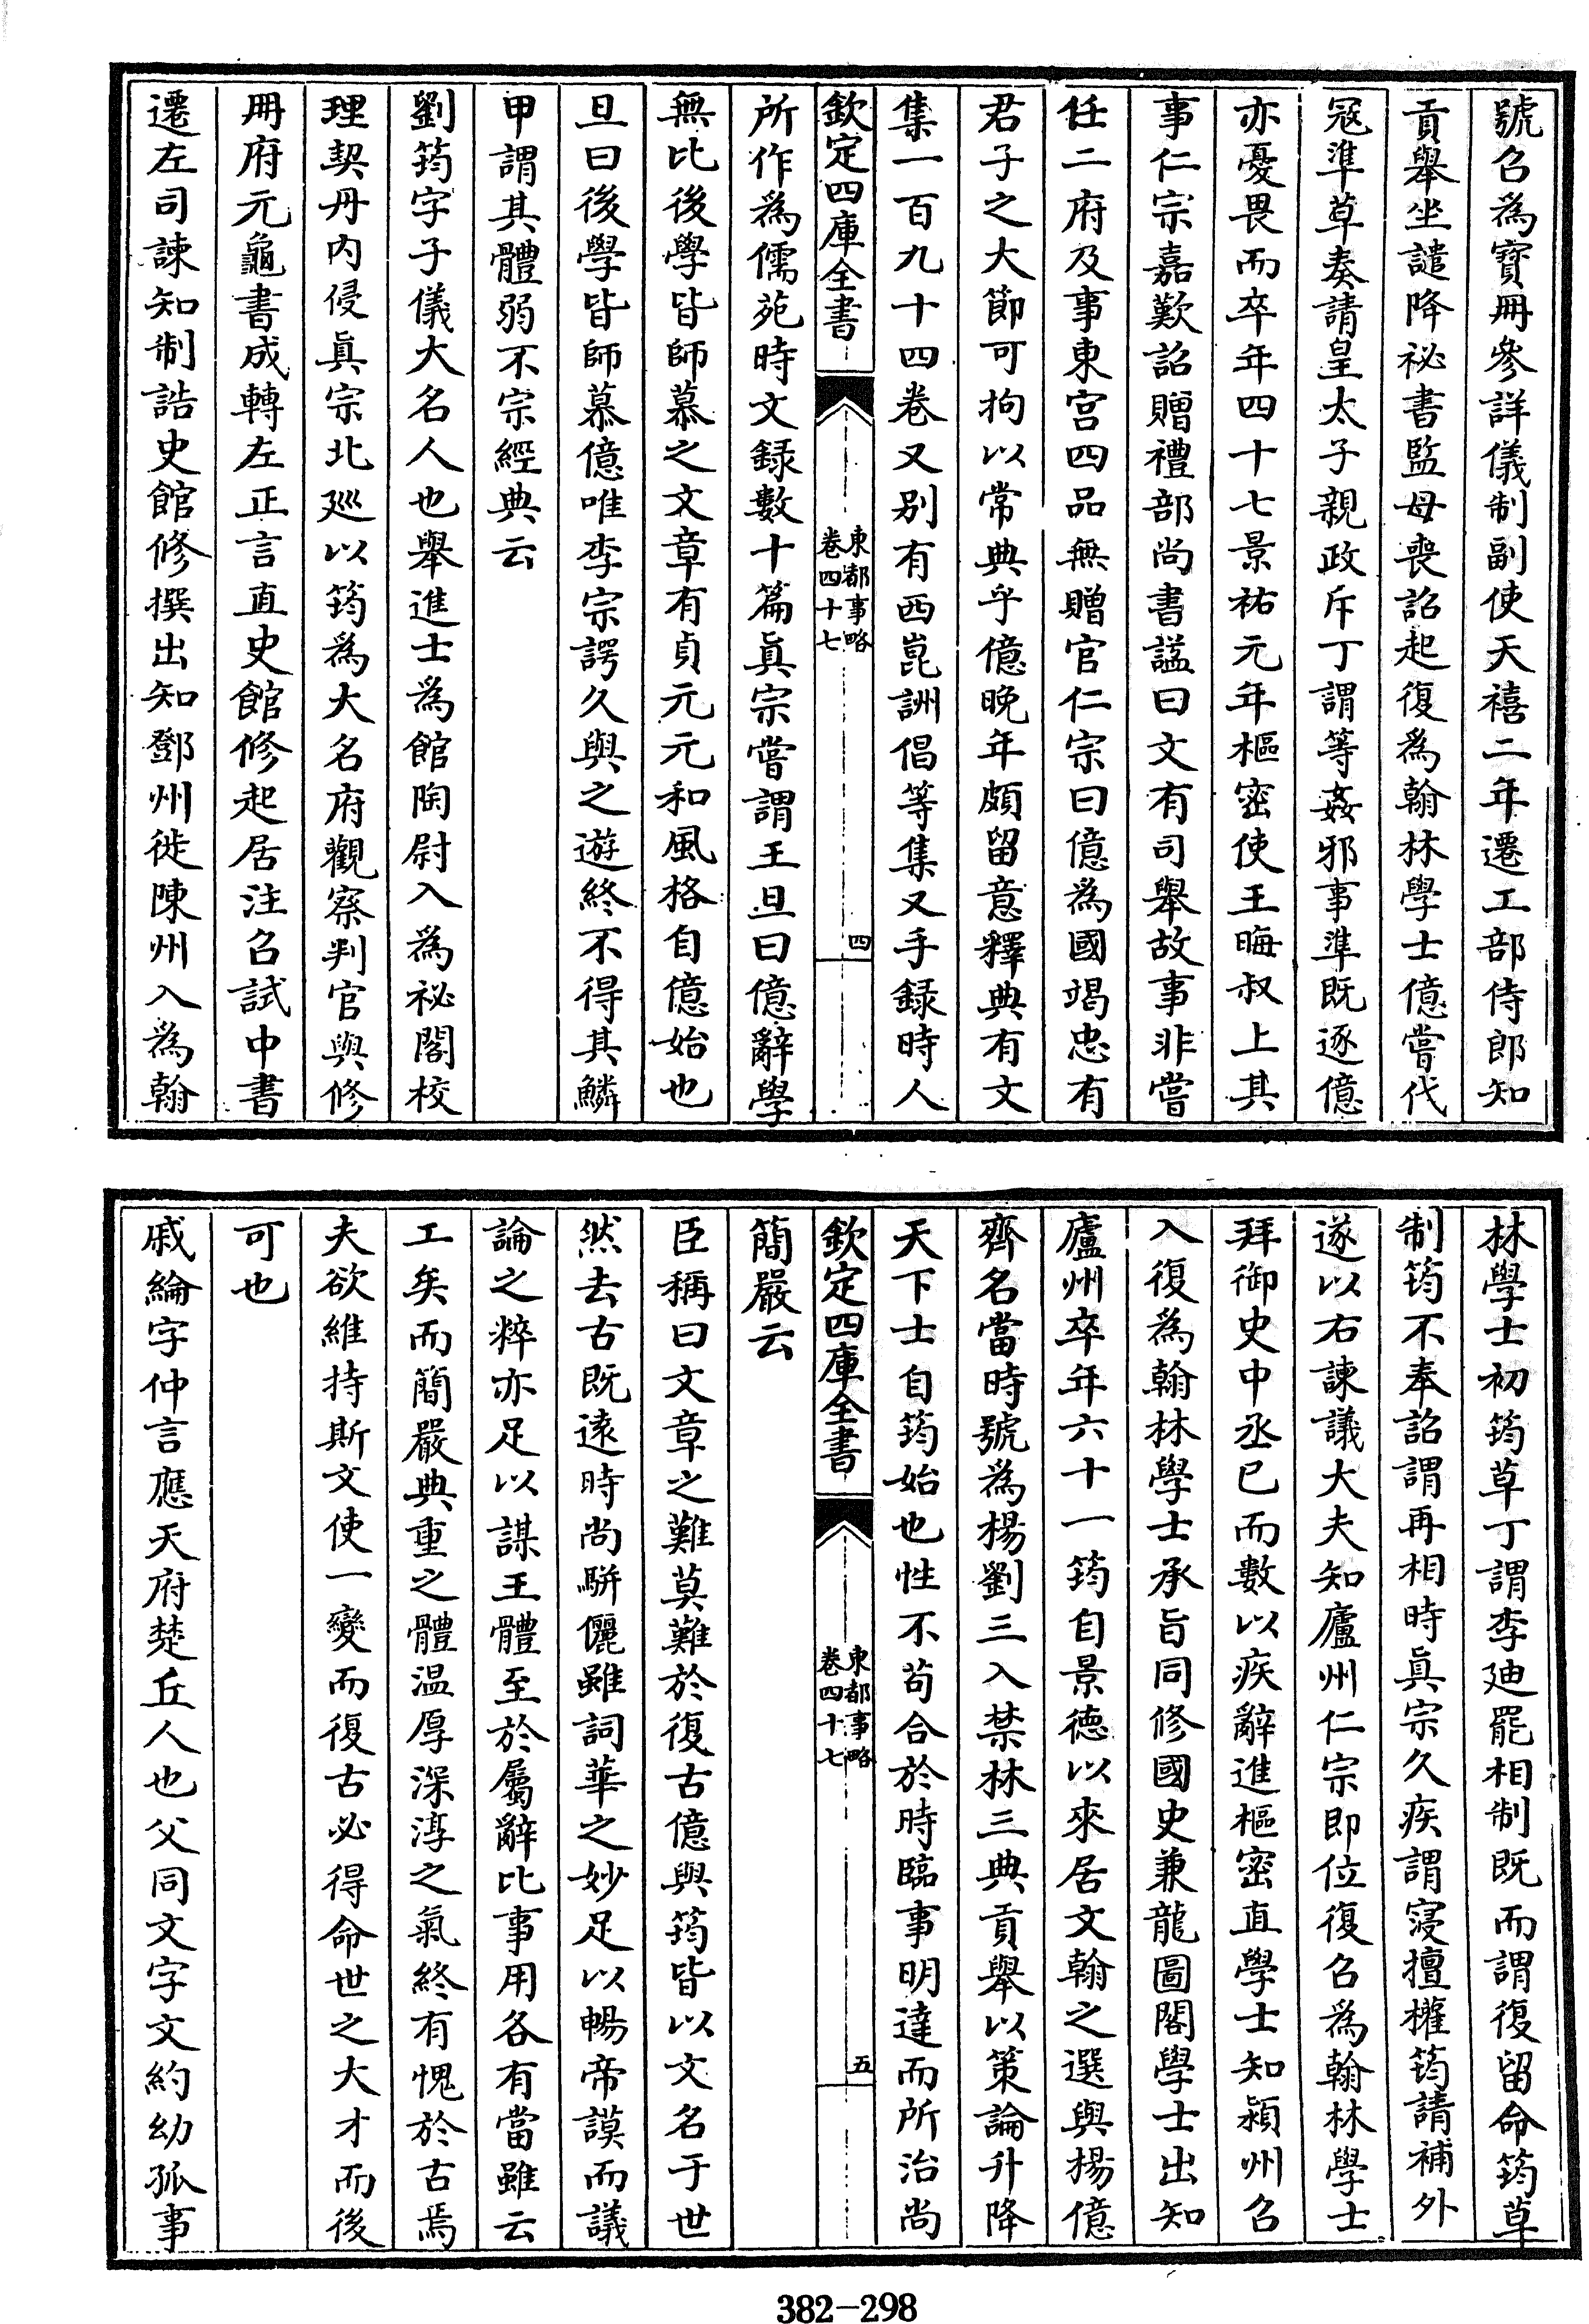 號召為寳冊參詳儀制副使天禧二年遷工部侍郎知
貢舉坐譴降祕書監母喪詔起復為翰林學士億嘗代
冦準草奏請皇太子親政斥丁謂等姦邪事準既逐億
亦憂畏而卒年四十七景祐元年樞密使王晦叔上其
事仁宗嘉歎詔贈禮部尚書諡曰文有司舉故事非嘗
任二府及事東宫四品無贈官仁宗曰億為國竭忠有
君子之大節可拘以常典乎億晚年頗留意釋典有文
集一百九十四卷又别有西崑詶倡等集又手録時人
欽定四庫全書
東都事略
卷四十七
四
所作為儒苑時文録數十篇真宗嘗謂王旦曰億辭學
無比後學皆師慕之文章有貞元元和風格自億始也
旦曰後學皆師慕億唯李宗諤久與之遊終不得其鱗
甲謂其體弱不宗經典云
劉筠字子儀大名人也舉進士為館陶尉入為祕閣校
理契丹内侵真宗北廵以筠為大名府觀察判官與修
冊府元龜書成轉左正言直史館修起居注召試中書
遷左司諫知制誥史館修撰出知鄧州徙陳州入為翰
林學士初筠草丁謂李迪罷相制既而謂復留命筠草
制筠不奉詔謂再相時真宗久疾謂寖擅權筠請補外
遂以右諫議大夫知廬州仁宗即位復召為翰林學士
拜御史中丞已而數以疾辭進樞密直學士知潁州召
入復為翰林學士承旨同修國史兼龍圖閣學士出知
廬州卒年六十一筠自景徳以來居文翰之選與楊億
齊名當時號為楊劉三入禁林三典貢舉以策論升降
天下士自筠始也性不苟合於時臨事明達而所治尚
欽定四庫全書
東都事略
卷四十七
五
簡嚴云
臣稱曰文章之難莫難於復古億與筠皆以文名于世
然去古既逺時尚駢儷雖詞華之妙足以暢帝謨而議
論之粹亦足以謀王體至於屬辭比事用各有當雖云
工矣而簡嚴典重之體温厚深淳之氣終有愧於古焉
夫欲維持斯文使一變而復古必得命世之大才而後
可也
戚綸字仲言應天府楚丘人也父同文字文約幼孤事
382-298